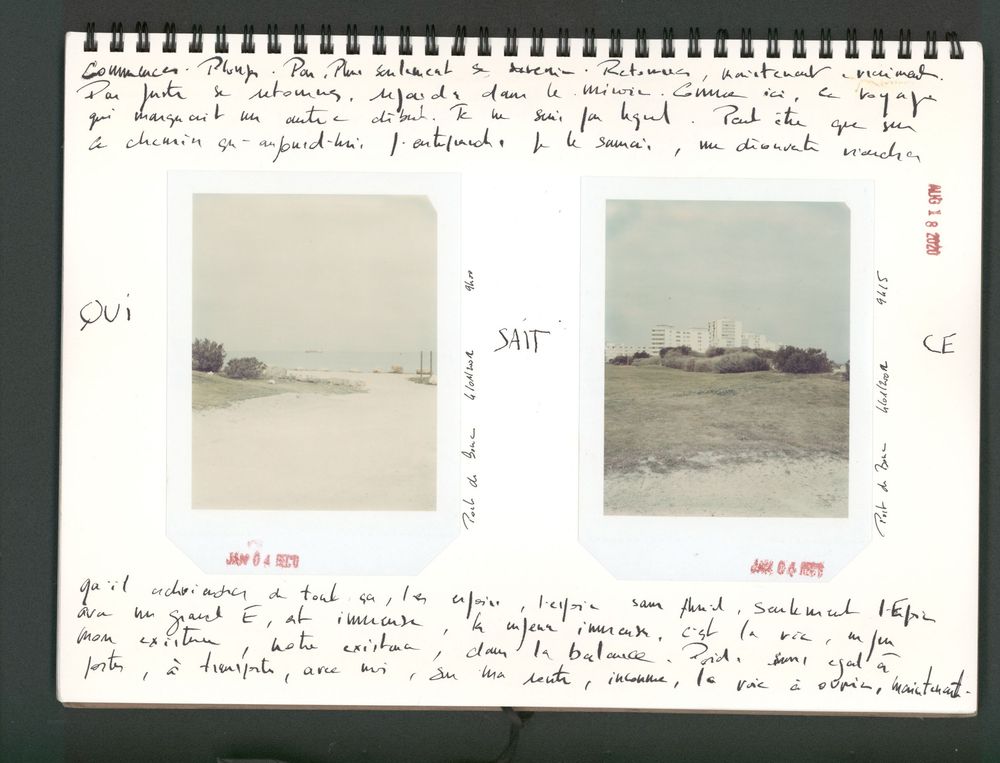 Commencer. Plonger. Pas plus seulement se souvenir. Retourner, maintenant vraiment.
Pas juste se retourner, regarder dans le miroir. Comme ici, ce voyage
qui marquait un autre début. Je ne suis pas lequel. Peut être que sur
ce chemin qu'aujourd'hui j'entreprends je le saurais, me découvrir viendra
QUI
SAIT
CE
Port de Bouc 9h00
Port de Bouc 9h15
AUG 18 2020
JAN 04
JAN 04
qu'il adviendra de tout ça, les espoirs, l'espoir sans fluid, seulement l'Espoir
avec un grand E, est immense, la immense, c'est la vie,
mon existence, notre existence, dans la balance. Poids sans égal à
porter, à transporter, avec moi, sur ma route, inconnue, la voie à ouvrir, maintenant.